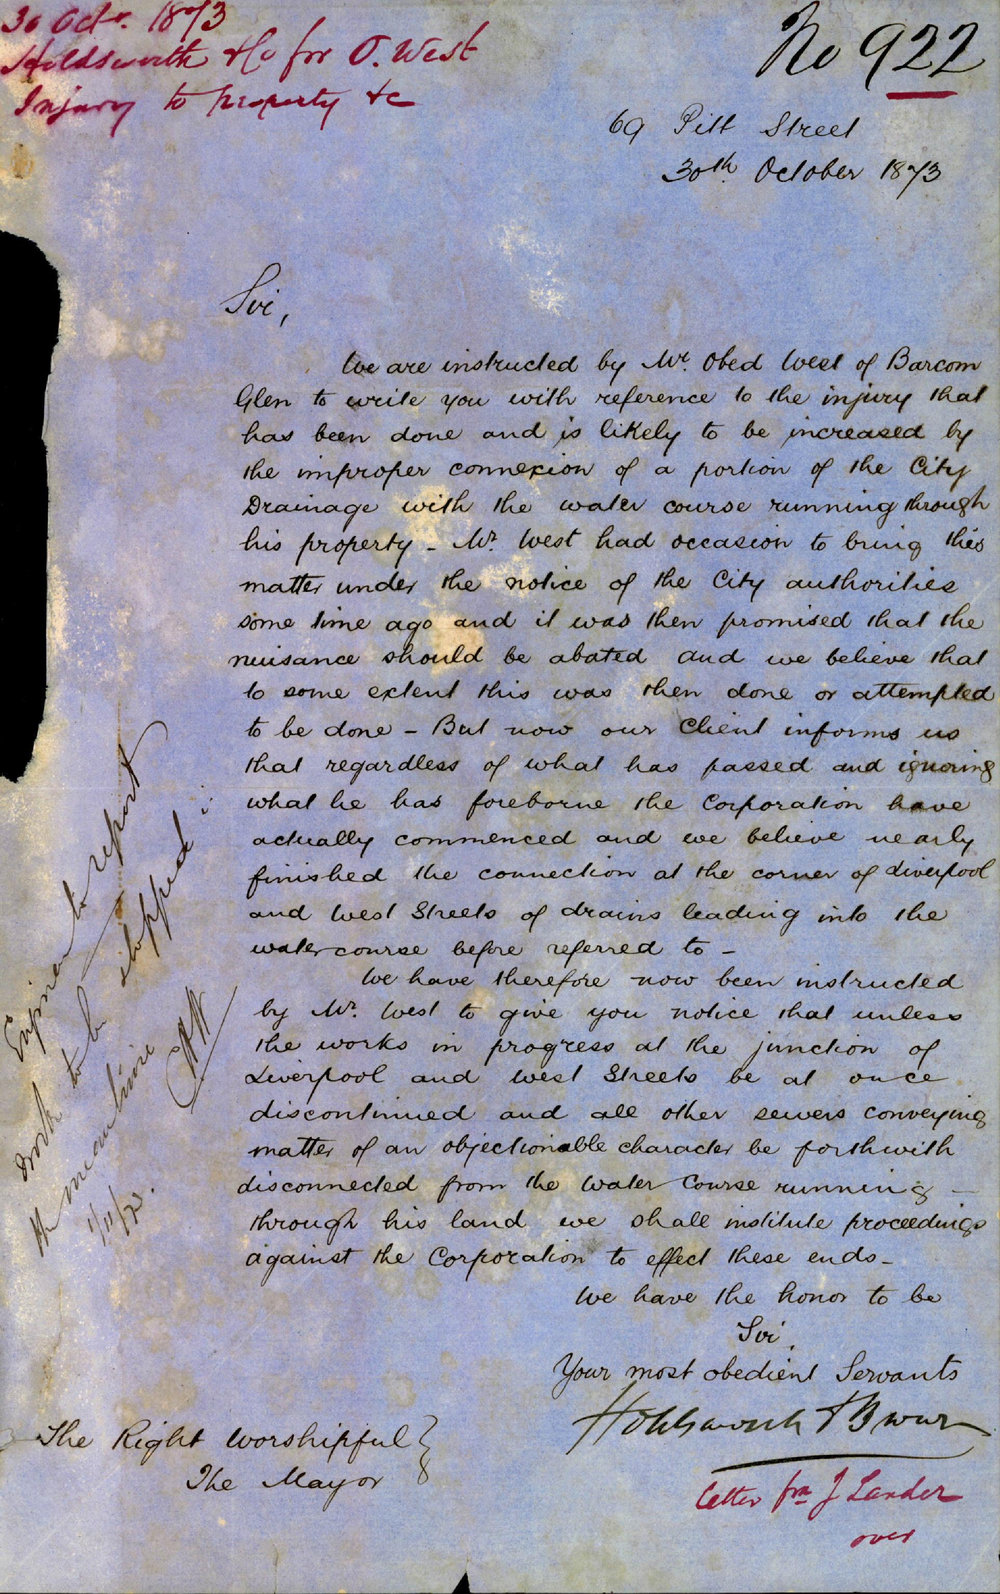 30 Octr. 1873
Holdsworth & Co for O. West
Injury to property &c
No 922
69 Pitt Street
30th October 1873
Sir,
We are instructed by Mr. Obed West of Barcom
Glen to write you with reference to the injury that
has been done and is likely to be increased by
the improper connexion of a portion of the City
Drainage with the water course running through
his property - Mr. West had occasion to bring this
matter under the notice of the City authorities
some time ago and it was then promised that the
nuisance should be abated and we believe that
to some extent this was then done or attempted
to be done - But now our Client informs us
that regardless of what has passed and ignoring
what he has foreborne the Corporation have
actually commenced and we believe nearly
finished the connection at the corner of Liverpool
and West Streets of drains leading into the
watercourse before referred to -
We have therefore now been instructed
by Mr. West to give you notice that unless
the works in progress at the junction of
Liverpool and West Streets be at once
discontinued and all other sewers conveying
matter of an objectionable character be forthwith
disconnected from the Water Course running -
through his land we shall institute proceedings
against the Corporation to effect these ends -
We have the honor to be
Sir,
Your most obedient Servants
Holdsworth &
The Right Worshipful
The Mayor
Letter frm J Lander
over
Engineer to report
Work to be stopped in
the meantime
1/11/73.